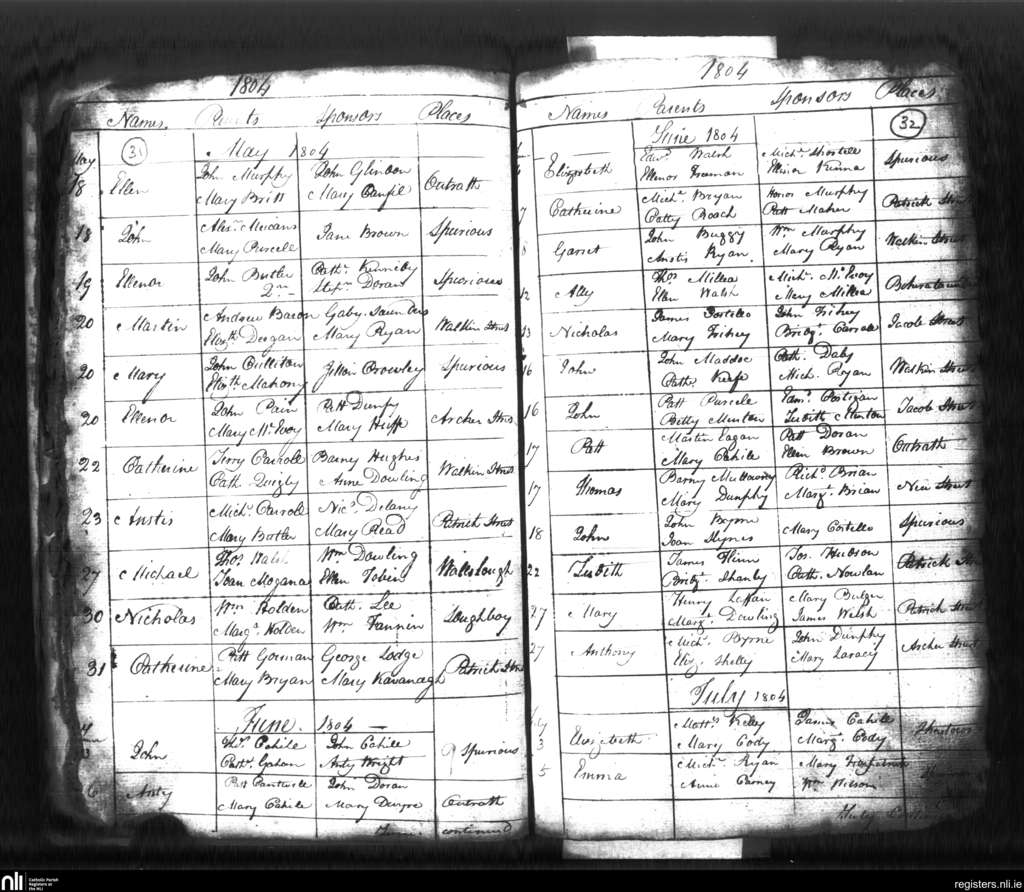 1804
Names. Parents Sponsors Places
31 May 1804
May
18 Ellen John Murphy John Glindon Outrath
Mary Britt Mary
18 John Alexr. Spurious
Mary Purcell Jane Brown
19 Ellenor John Butler Cathn. Kennedy Spurious
Stepn. Doran
20 Martin Andrew Bacon Gaby Saunders Walkin Street
Elizth. Deegan Mary Ryan
20 Mary John Culliton Crowley Spurious
Elizth. Mahony
20 Ellenor John Pain Patt Dunfy Archer Street
Mary McEvoy Mary Huff
22 Catherine Terry Carroll Barney Hughes Walkin Street
Cath Quigly Anne Dowling
23 Anstis Michl. Carroll Nics. Delany Patrick Street
Mary Butler Mary Read
27 Michael Thos. Walsh Wm Dowling Wallslough
Joan Mogana Ellen Tobin
30 Nicholas Wm Holden Cath. Lee Loughboy
Margt. Holden Wm. Fannin
31 Catherine Patt Gorman George Lodge Patrick Street
Mary Bryan Mary Kavanagh
June. 1804
John Thos. Cahill John Cahill Spurious
Gahan Anty Wright
6 Anty Patt John Doran Outrath
Mary Cahill Mary Dwyre
June continued
1804
Names Parents Sponsors Places
32
June 1804
Elizabeth Edwd. Walsh Michl. Spurious
Ellenor Freeman Ellinor
7 Catherine Michl. Bryan Honor Murphy Patrick Street
Catty Roach Patt Maher
8 Garret John Buggy Wm Murphy Walkin Street
Anstis Ryan. Mary Ryan
12 Ally Thos. Millea Michl. McEvoy
Ellen Walsh Mary Millea
13 Nicholas James Costello John Jacob Street
Mary Bridgt. Carroll
16 John John Maddoc Cath. Daly Walkin Street
Cath. Keefe Mich. Ryan
16 John Patt Purcell Edmd. Costigan Jacob Street
Betty Minton Judith Minton
17 Patt Martin Eagan Patt Doran Outrath
Mary Cahill Ellen Brown
17 Thomas Barny Mullowny Richd. Brian New Street
Mary Dunphy Margt. Brian
18 John John Byrne Mary Costello Spurious
Joan Hynes
22 Judith James Flinn Jos. Hudson Patrick
Bridgt. Shanly Cath. Nowlan
27 Mary Henry Laffan Mary Bulger Patrick Street
Margt. Dowling James Welsh
27 Anthony Michl. Byrne John Dunphy Archer Street
Eliz. Shelley Mary Laracy
July 1804
July
3 Elizabeth Matts. Kelley James Cahill
Mary Cody Margt. Cody
5 Emma Michl. Ryan Mary Fitzpatrick
Annie Carney Wm. Wilson
July
nli Catholic Parish Registers at the NLI
registers.nli.ie